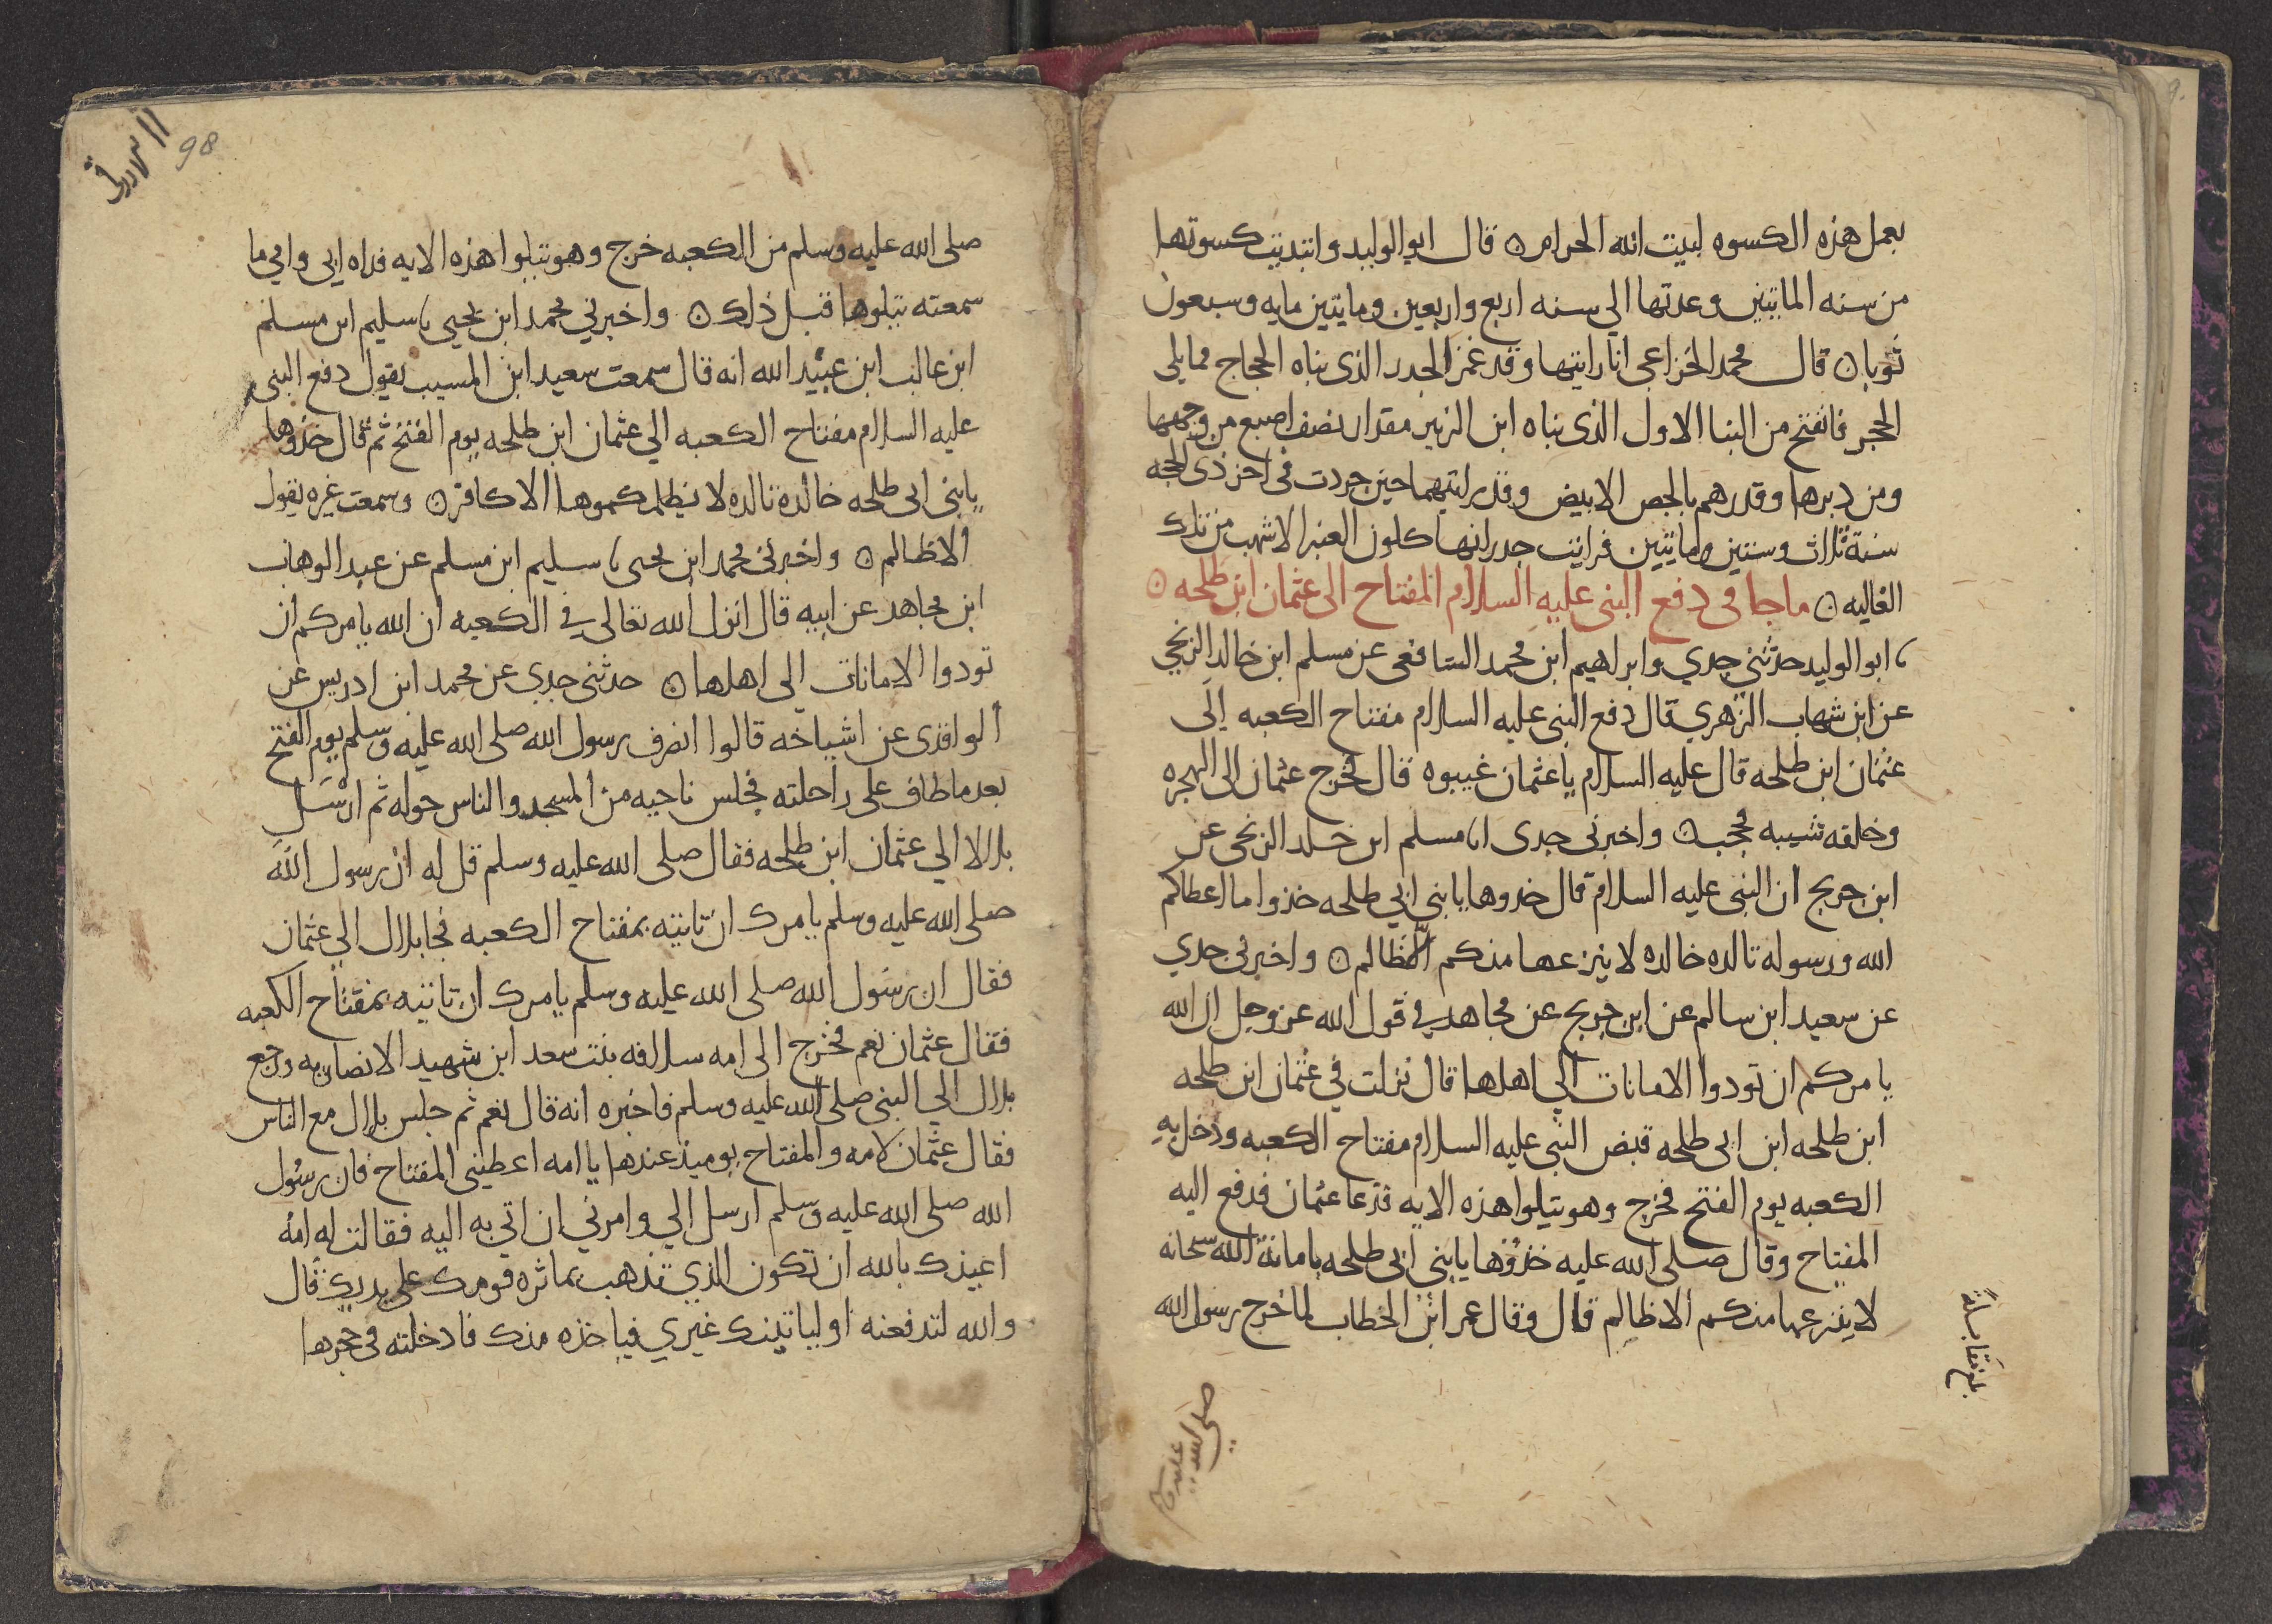 بعمل هذه الكسوه لبيت الله الحرام ن قال ابو الوليد وابتديت كسوتها
من سنه المايتين وعدتها الي سنه اربع واربعين ومايتين مايه وسبعون
ثوبا ن قال محمد الخزاعي انا رايتها وقد عمر الجدر الذى بناه الحجاج مما يلى
الحجر فانفتح من البنا الاول الذى بناه ابن الزبير مقدار نصف اصبع من وجهها
ومن دبرها وقد رهم بالجص الابيض وقد رايتهما حين جردت فى اخر ذى الحجه
سنة ثلاث وستين ومايتين فرايت جدرانها كلون العنبر الاشهب من تلك
الغاليه ن ماجا فى دفع النبى عليه السلام المفتاح الى عثمان ابن طلحه ن
ابو الوليد حدثنى جدي وابراهيم ابن محمد الشافعى عن مسلم ابن خالد الزنجي
عن ابن شهاب الزهري قال دفع النبى عليه السلام مفتاح الكعبه الى
عثمان ابن طلحه قال عليه السلام ياعثمان غيبوه قال فخرج عثمان الى الهجره
وخلفه شيبه فحجب ن واخبرنى جدى انا مسلم ابن خلد الزنجى عن
ابن جريج ان النبى عليه السلام قال خدوها يابني ابي طلحه خذوا ما اعطاكم
الله ورسوله تالده خالده لا ينزعها منكم الا ظالم ن واخبرنى جدي
عن سعيد ابن سالم عن ابن جريج عن مجاهد في قول الله عز وجل ان الله
يامركم ان تودوا الامانات الي اهلها قال نزلت في عثمان ابن طلحه
ابن طلحه ابن ابى طلحه قبض النبى عليه السلام مفتاح الكعبه ودخل به
الكعبه يوم الفتح فخرج وهو يتلوا هذه الايه فدعا عثمان فدفع اليه
المفتاح وقال صلى الله عليه خذوها يابني ابى طلحه بامانة الله سبحانه
لا ينزعها منكم الا ظالم قال وقال عمر ابن الخطاب لما خرج رسول الله
صلى الله عليه وسلم
بلغ مقابلة
98
صلى الله عليه وسلم من الكعبه خرج وهو يتلوا هذه الايه فداه ابى وامي ما
سمعته يتلوها قبل ذلك ن واخبرني محمد ابن يحيى نا سليم ابن مسلم
ابن غالب ابن عبيد الله انه قال سمعت سعيد ابن المسيب يقول دفع النبى
عليه السلام مفتاح الكعبه الي عثمان ابن طلحه يوم الفتح ثم قال خذوها
يابنى ابى طلحه خالده تالده لا يظلمكموها الا كافر ن وسمعت غيره يقول
الا ظالم ن واخبرنى محمد ابن يحى نا سليم ابن مسلم عن عبد الوهاب
ابن مجاهد عن ابيه قال انزل الله تعالى في الكعبه ان الله يامركم ان
تودوا الامانات الى اهلها ن حدثنى جدي عن محمد ابن ادريس عن
الواقدى عن اشياخه قالوا انصرف رسول الله صلى الله عليه وسلم يوم الفتح
بعد ما طاف على راحلته فجلس ناحيه من المسجد والناس حوله ثم ارسل
بلالا الي عثمان ابن طلحه فقال صلى الله عليه وسلم قل له ان رسول الله
صلى الله عليه وسلم يامرك ان تاتيه بمفتاح الكعبه فجا بلال الي عثمان
فقال ان رسول الله صلى الله عليه وسلم يامرك ان تاتيه بمفتاح الكعبه
فقال عثمان نعم فخرج الى امه سلافه بنت سعد ابن شهيد الانصاريه ورجع
بلال الي النبى صلى الله عليه وسلم فاخبره انه قال نعم ثم جلس بلال مع الناس
فقال عثمان لامه والمفتاح يوميذ عندها يا امه اعطينى المفتاح فان رسول
الله صلى الله عليه وسلم ارسل الي وامرني ان اتي به اليه فقالت له امه
اعيذك بالله ان تكون الذي تذهب بماثره قومك على يديك قال
والله لتدفعنه او لياتينك غيري فياخذه منك فادخلته فى حجرها